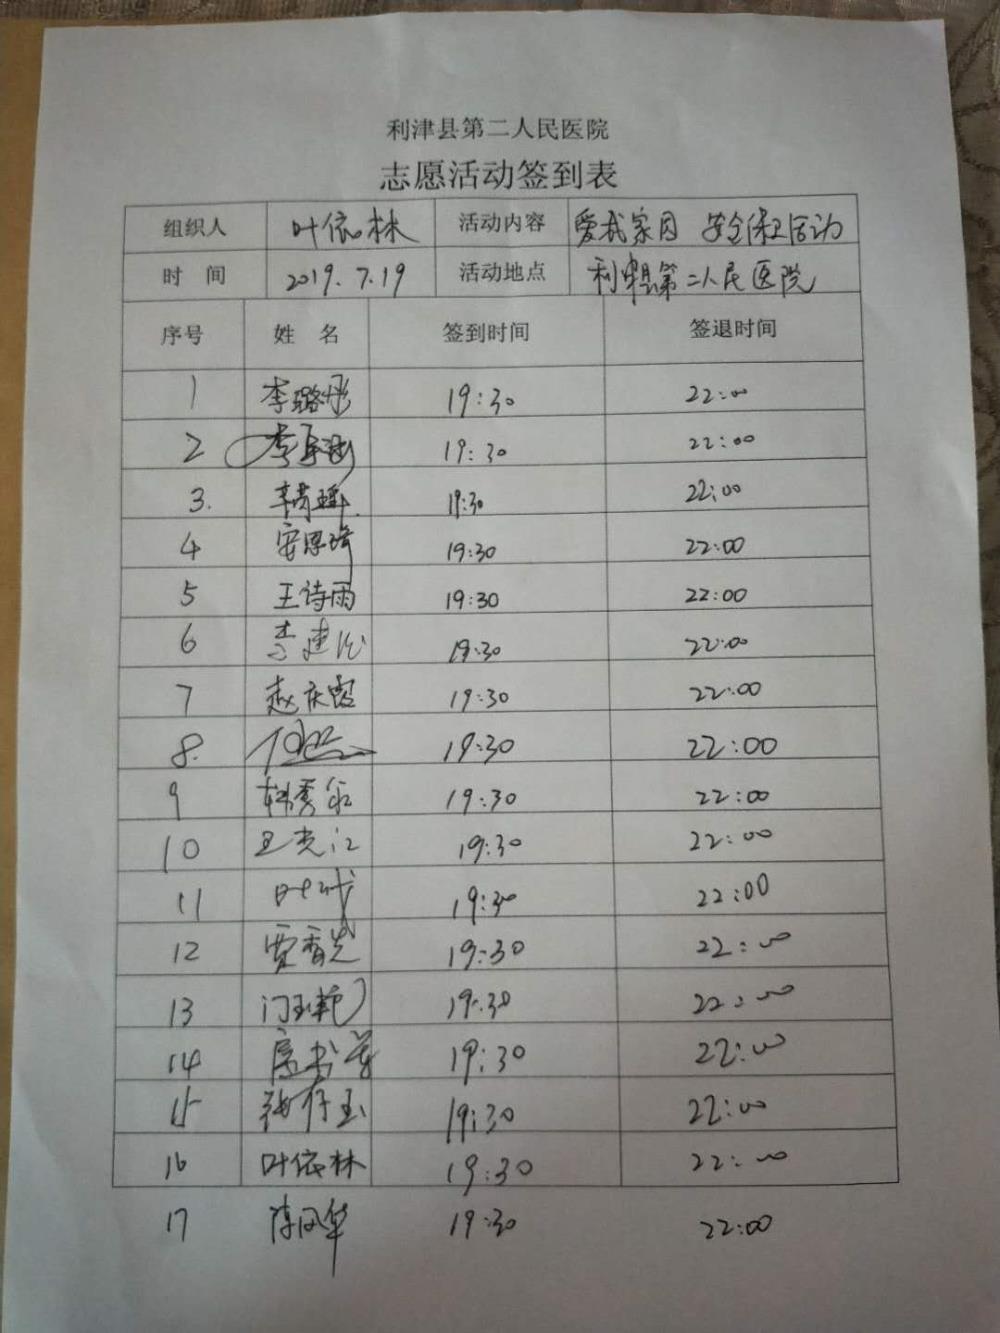 利津县第二人民医院
志愿活动签到表
组织人 叶依林 活动内容 爱我家园 安全保卫活动
时 间 2019.7.19 活动地点 利津县第二人民医院
序号 姓 名 签到时间 签退时间
1 李璐彤 19:30 22:00
2 19:30 22:00
3. 19:30 22:00
4 安思琦 19:30 22:00
5 王诗雨 19:30 22:00
6 李建 19:30 22:00
7 赵庆 19:30 22:00
8. 19:30 22:00
9 韩秀 19:30 22:00
10 王光江 19:30 22:00
11 19:30 22:00
12 贾香 19:30 22:00
13 门玉艳 19:30 22:00
14 19:30 22:00
15 19:30 22:00
16 叶依林 19:30 22:00
17 陈凤华 19:30 22:00